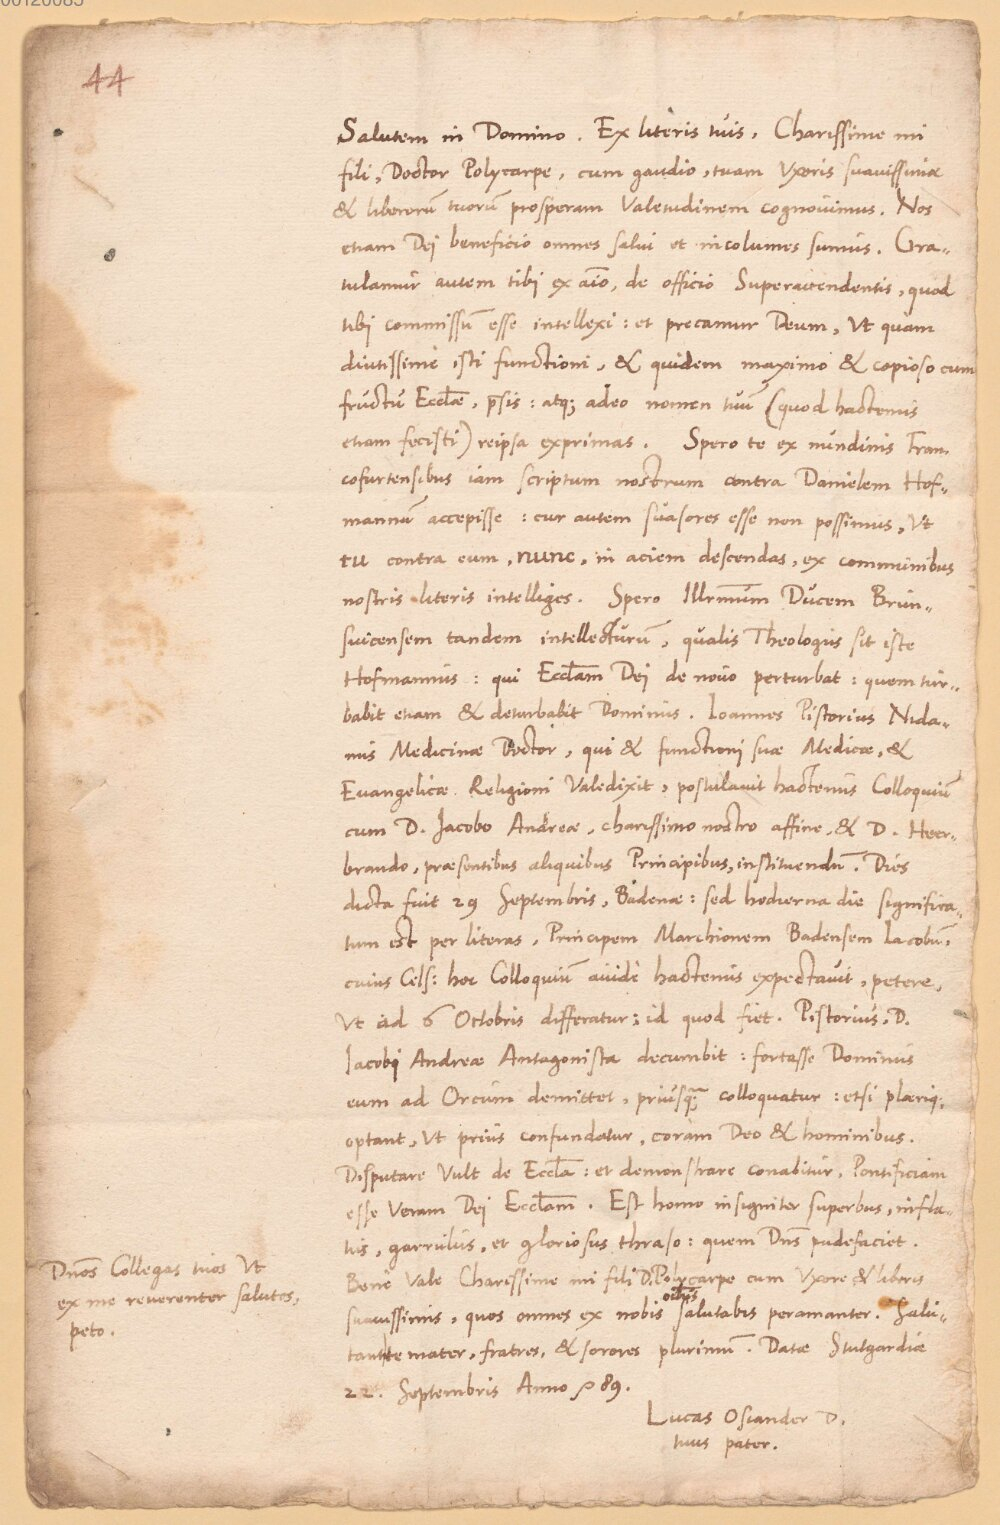 00120085
44
Salutem in Domino. Ex literis tuis, Charissime mi
fili, Doctor Polycarpe, cum gaudio, tuam Vxoris suavissimæ
& liberorū tuorū prosperam Valetudinem cognovimus. Nos
etiam Dei beneficio omnes salvi et incolumes sumus. Gra-
tulamur autem tibi ex aīo, de officio Superattendentis, quod
tibi commissū esse intellexi: et precamur Deum, Vt quàm
diutissimè isti functioni, & quidem maximo & copioso cum
fructu Eccłæ, p̄sis: atq; adeo nomen tuū (quod hactenus
etiam fecisti) reipsa exprimas. Spero te ex nundinis Fran
cofurtensibus iam scriptum nostrum contra Danielem Hof-
mannū accepisse: cur autem suasores esse non possimus, Vt
tu contra eum, nunc, in aciem descendas, ex communibus
nostris literis intelliges. Spero Illrmūm Ducem Brun-
suicensem tandem intellecturū, qualis Theologus sit iste
Hofmannus: qui Eccłam Dei de novo perturbat: quem tur-
babit etiam & deturbabit Dominus. Ioannes Pistorius Nida-
nus Medicinæ Doctor, qui & functioni suæ Medicæ, &
Evangelicæ Religioni Valedixit, postulavit hactenus Colloquiū
cum D. Iacobo Andreæ, charissimo nostro affine, & D. Heer-
brando, præsentibus aliquibus Principibus, instituendū. Dies
dicta fuit 29 Septembris, Badenæ: sed hodierna die significa-
tum est per literas, Principem Marchionem Badensem Iacobū,
cuius Cels: hoc Colloquiū avidè hactenus expectavit, petere,
Vt ad 6 Octobris differatur; id quod fiet. Pistorius, D.
Iacobi Andreæ Antagonista decumbit: fortasse Dominus
eum ad Orcum demittet, priusq̄; colloquatur: etsi pleriq;
optant, Vt prius confundatur, coram Deo & hominibus.
Disputare Vult de Eccła: et demonstrare conabitur, Pontificiam
esse Veram Dei Eccłam. Est homo insigniter superbus, infla-
tus, garrulus, et gloriosus thraso: quem Dn̄s pudefaciet.
Benè Vale Charissime mi fili D. Polycarpe cum Vxore & liberis
suavissimis, quos omnes ex nobis om̄ibus salutabis peramanter. Salu-
tant te mater, fratres, & sorores plurimū. Datæ Stutgardiæ
22. Septembris Anno 89.
Lucas Osiander D.
tuus pater.
Dn̄os Collegas tuos Vt
ex me reverenter salutes,
peto.